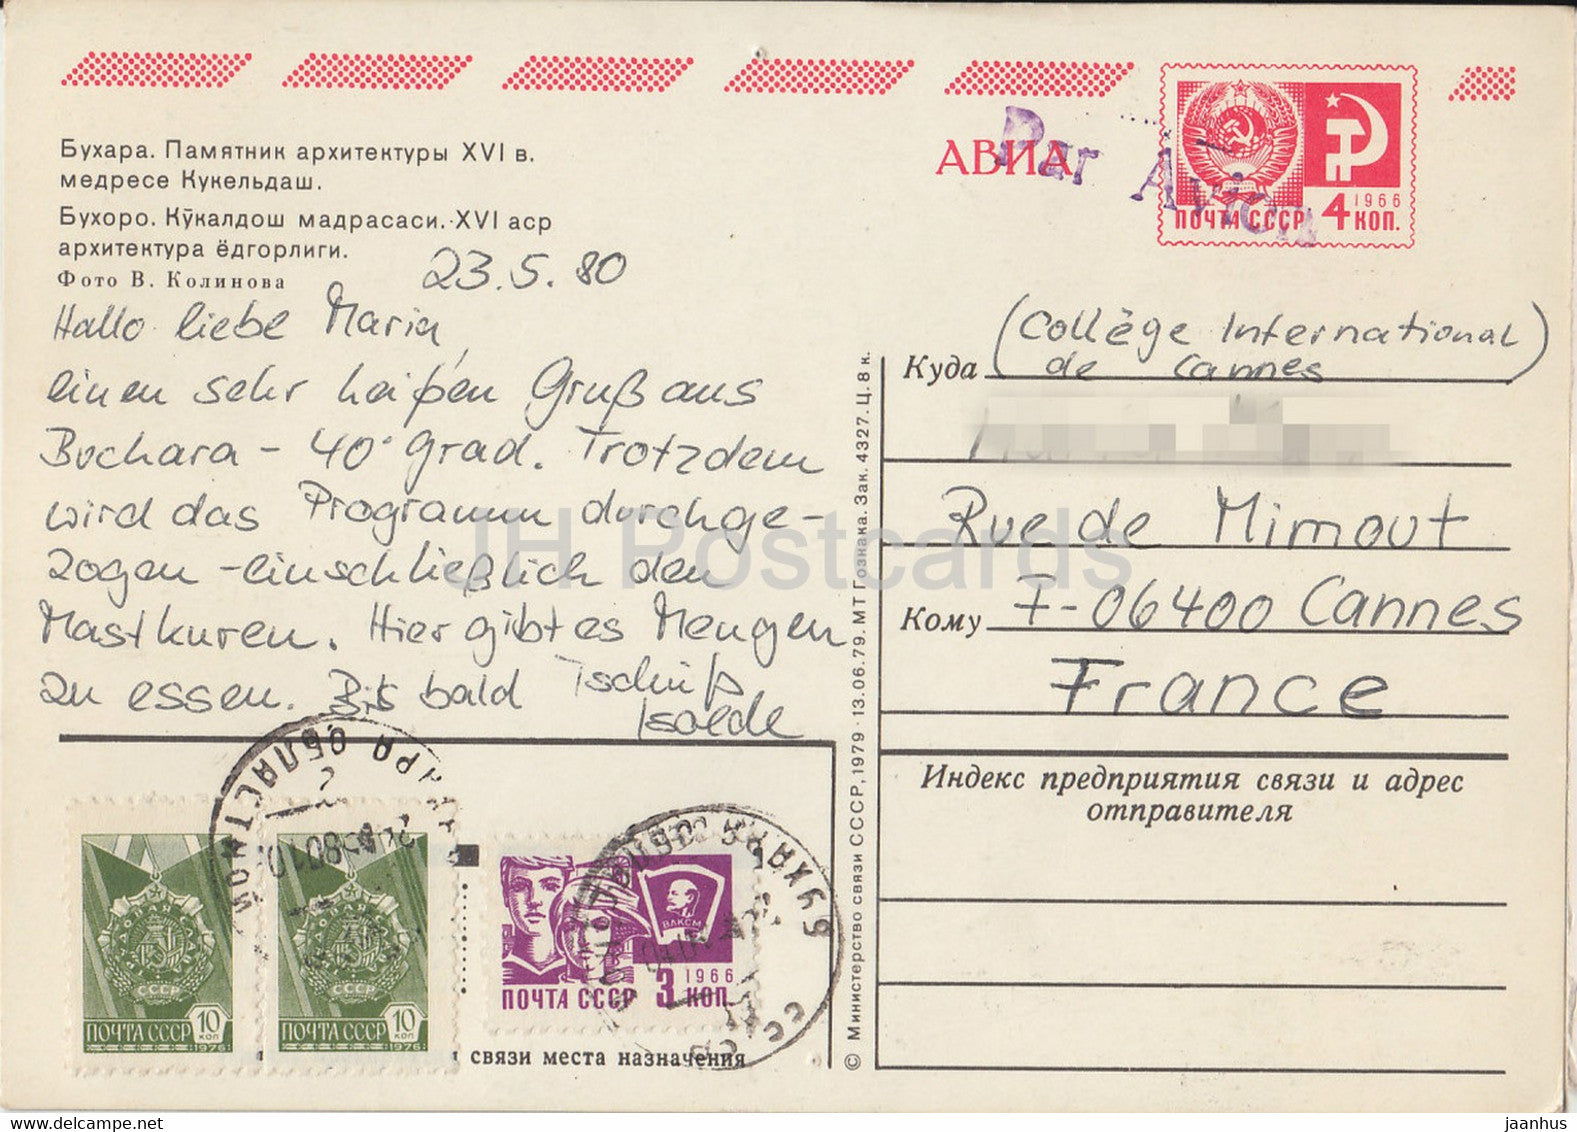 Бухара. Памятник архитектуры XVI в.
медресе Кукельдаш.
Бухоро. Кўкалдош мадрасаси. XVI аср
архитектура ёдгорлиги.
Фото В. Колинова
23.5.80
Hallo liebe Maria,
einen sehr heißen Gruß aus
Buchara - 40° Grad. Trotzdem
wird das Programm durchge-
zogen - einschließlich den
Mastkuren. Hier gibt es Mengen
zu essen. Bis bald Tschüß
Isolde
АВИА
Par Avion
ПОЧТА СССР 4 КОП.
1966
(Collège International
Куда de Cannes)
Rue de Mimout
Кому F-06400 Cannes
France
Индекс предприятия связи и адрес
отправителя
© Министерство связи СССР, 1979 · 13.06.79. МТ Гознака. Зак. 4327. Ц. 8 к.
СССР
ПОЧТА СССР 10 КОП
1976
СССР
ПОЧТА СССР 10 КОП
1976
ВЛКСМ
1966
ПОЧТА СССР 3 КОП.
БУХАРА
связи места назначения
JH Postcards
delcampe.net
jaanhus